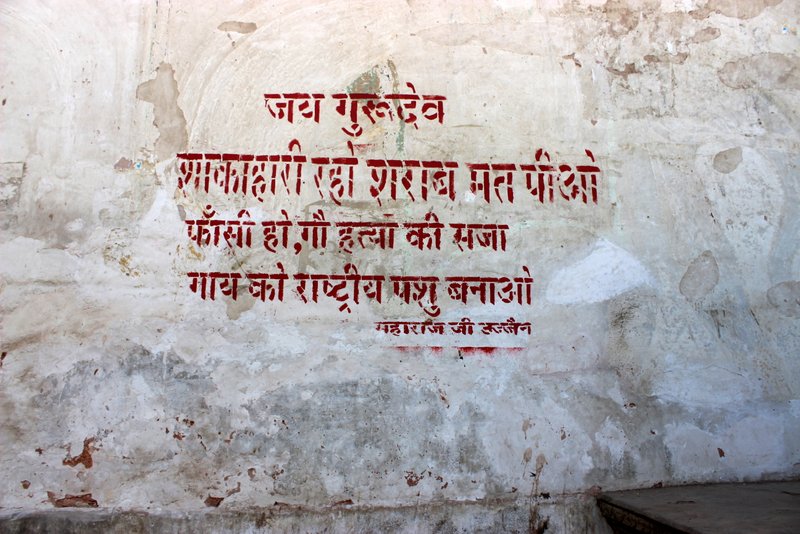 जय गुरूदेव
शाकाहारी रहो शराब मत पीओ
फाँसी हो,गौ हत्या की सजा
गाय को राष्ट्रीय पशु बनाओ
महाराज जी उज्जैन